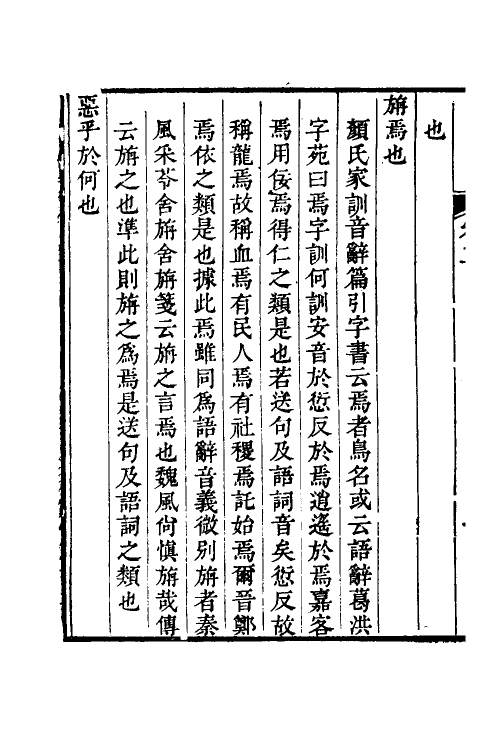 也
旃焉也
顏氏家訓音辭篇引字書云焉者鳥名或云語辭葛洪
字苑曰焉字訓何訓安音於愆反於焉逍遙於焉嘉客
焉用佞焉得仁之類是也若送句及語詞音矣愆反故
稱龍焉故稱血焉有民人焉有社稷焉託始焉爾晉鄭
焉依之類是也據此焉雖同爲語辭音義微別旃者秦
風采苓舍旃舍旃箋云旃之言焉也魏風尙愼旃哉傳
云旃之也準此則旃之爲焉是送句及語詞之類也
惡乎於何也